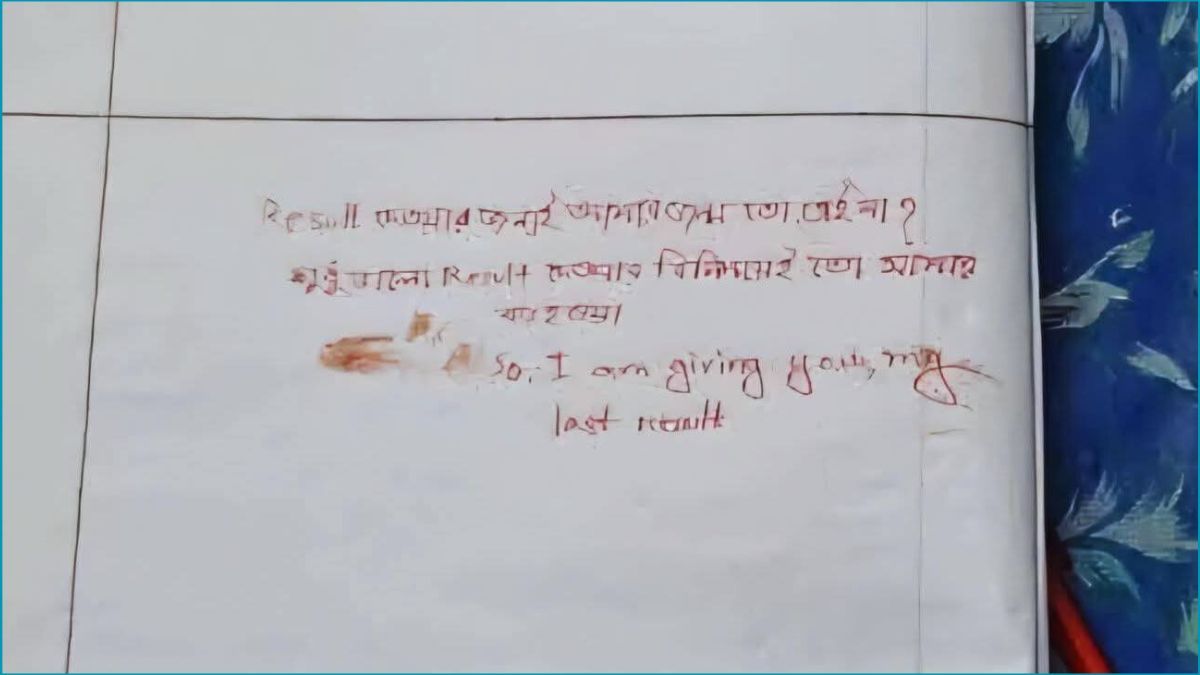 Result দেওয়ার জন্যই আমার জন্ম তো, তাই না?
শুধু ভালো Result দেওয়ার বিনিময়েই তো আমার
So, I am giving you, my
last result